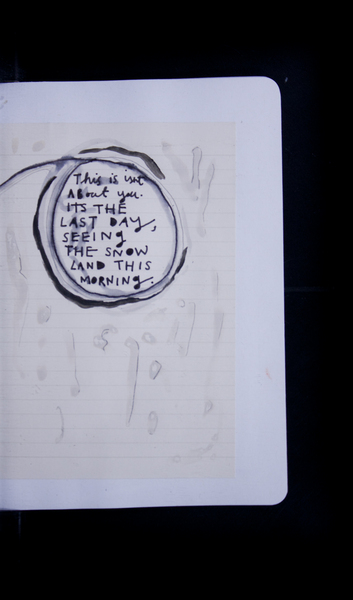 This is isnt
About you.
ITS THE
LAST DAY,
SEEING
THE SNOW
LAND THIS
MORNING.